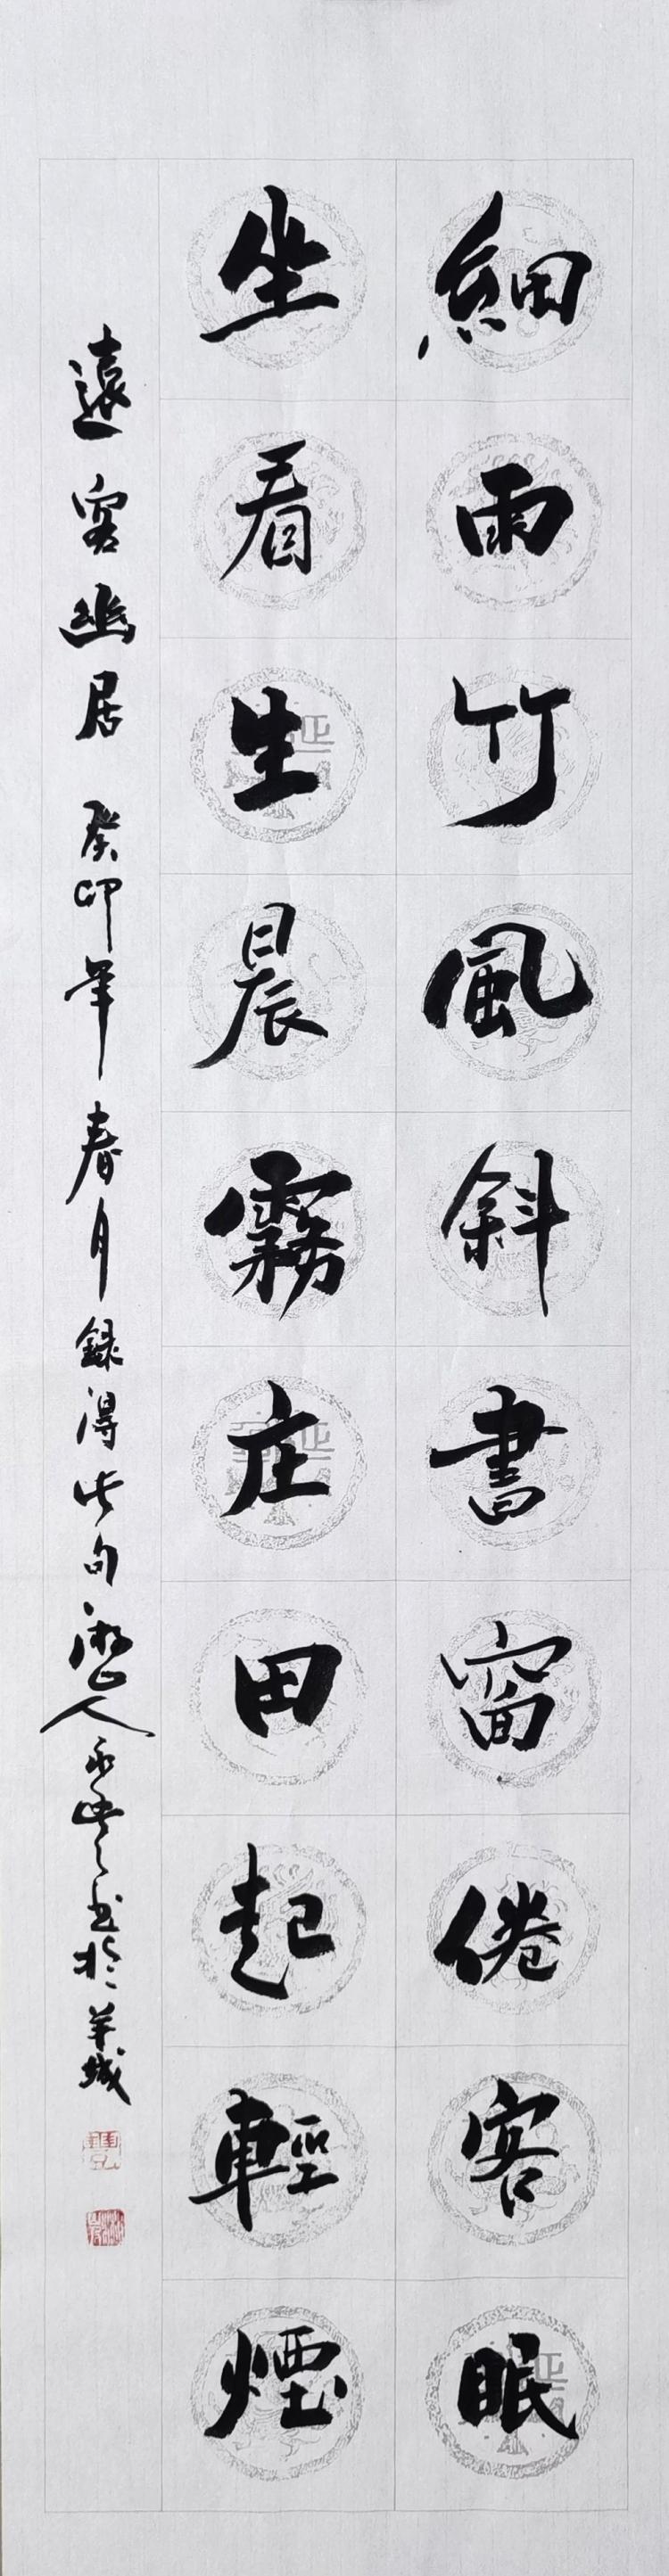 細雨竹風斜書窗倦客眠
坐看生晨霧庄田起輕煙
遠客幽居 癸卯年春月錄得此句 山人 書於羊城